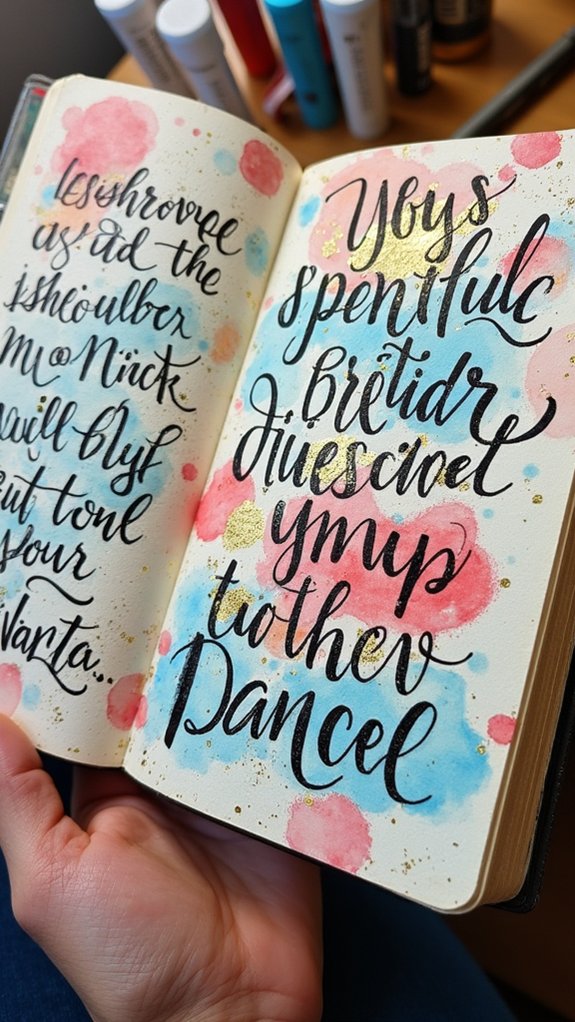 lesishrovee
as tid the
isheoulbez
Mo Nick
will blyf
out tone
your
Varta..
Ybys
spentfulc
bretidr
jiuescivel
ymyp
tuothev
Dancel